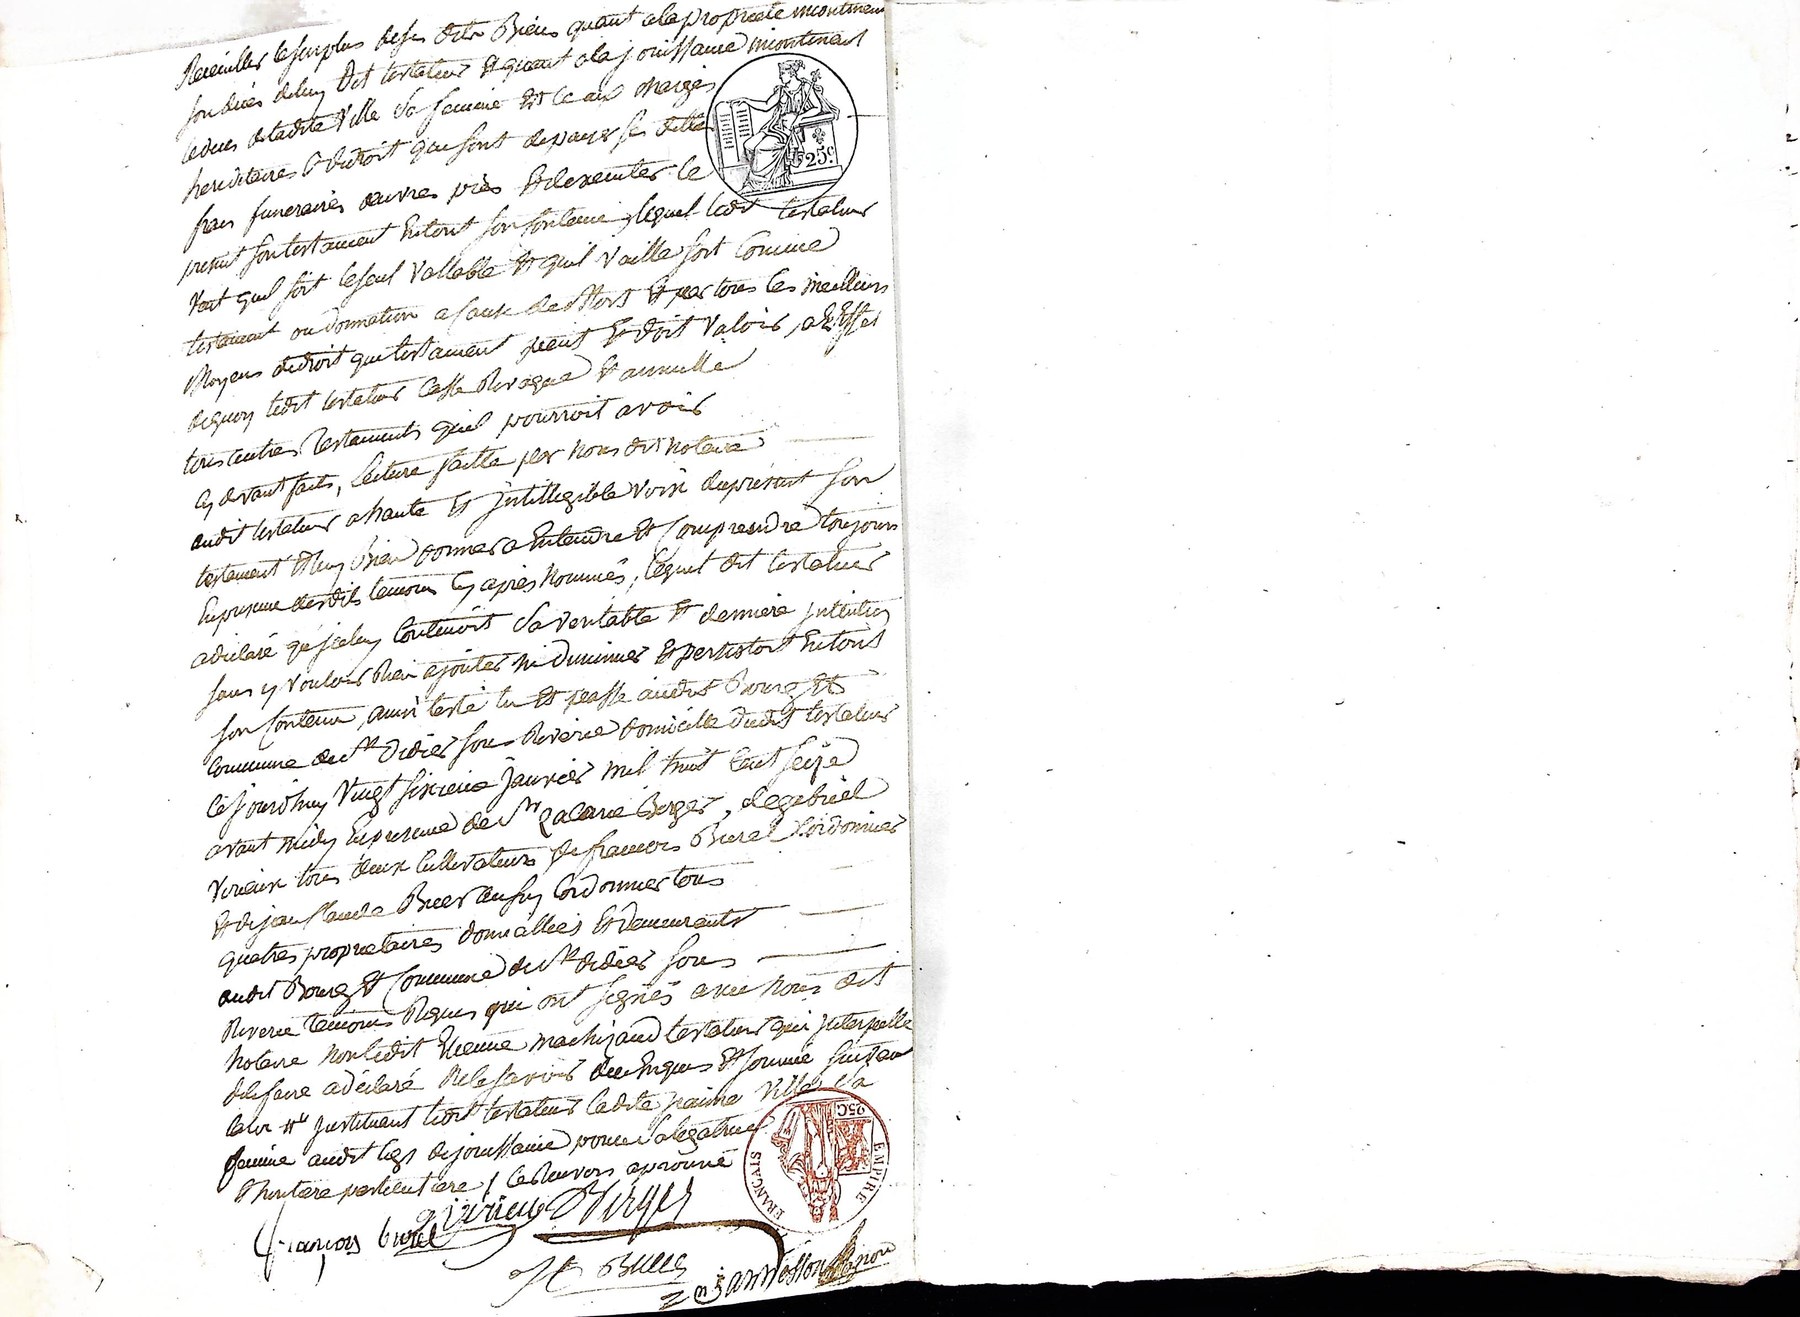 Recueillir le surplus de ses dits Biens quant a la propriete incontinent
son deces de luy Dit testateur Et quant a la jouissance incontinent
le deces de ladite Ville Sa femme Et ce aux charges
hereditaires De droit que sont de payer ses dettes
frais funeraires œuvres pies Et d'executer le
present son testament En tout son contenu, lequel ledit testateur
veut quil soit le seul Vallable Et quil Vaille soit Comme
testament ou donnation a cause de Mort Et par tous les meilleurs
Moyens de droit que testament peut Et doit Valoir, a l'Effet
de quoy ledit testateur Casse Revoque Et annulle
tous autres Testaments quil pourroit avoir
cy devant faits, Lecture faitte par nous dit notaire
audit testateur a haute Et jntelligible voix du présent son
testament Et luy Bien donner a Entendre Et Comprendre toujours
En presence desdits temoins Cy après Nommés, lequel dit testateur
a declaré que jceluy Contenoit Sa veritable Et derniere jntention
sans y vouloir Rien ajouter ni diminuer Et persistoit En tout
son Contenu, ainsi testé lu Et passé audit Bourg Et
Commune de St Didier sous Riverie Domicille dudit testateur
Ce jourdhuy Vingt sixieme janvier mil huit Cent seize
avant midy En presence de Sr Zacarie Berger, de gabriel
Viricux tous deux Cultivateurs de francois Burel Cordonnier
Et de jean Claude Buer aussy Cordonnier tous
quatres proprietaires domicilliés Et Demeurants
audit Bourg Et Commune de St didier sous
Riverie temoins Requis qui ont signés avec Nous dit
Notaire non ledit Etienne machizaud testateur qui jnterpellé
de le faire a déclaré ne le savoir de ce Enquis Et somme suivant
la loi Et jnstituant ledit testateur ladite jeanne Ville Sa
femme audit legs de jouissance pour Sa legatrice
Et heritiere particuliere / Ces Renvois aprouvé
25 c.
EMPIRE FRANÇAIS
25 C
g Viricux Berger
francois burel
J C Buer